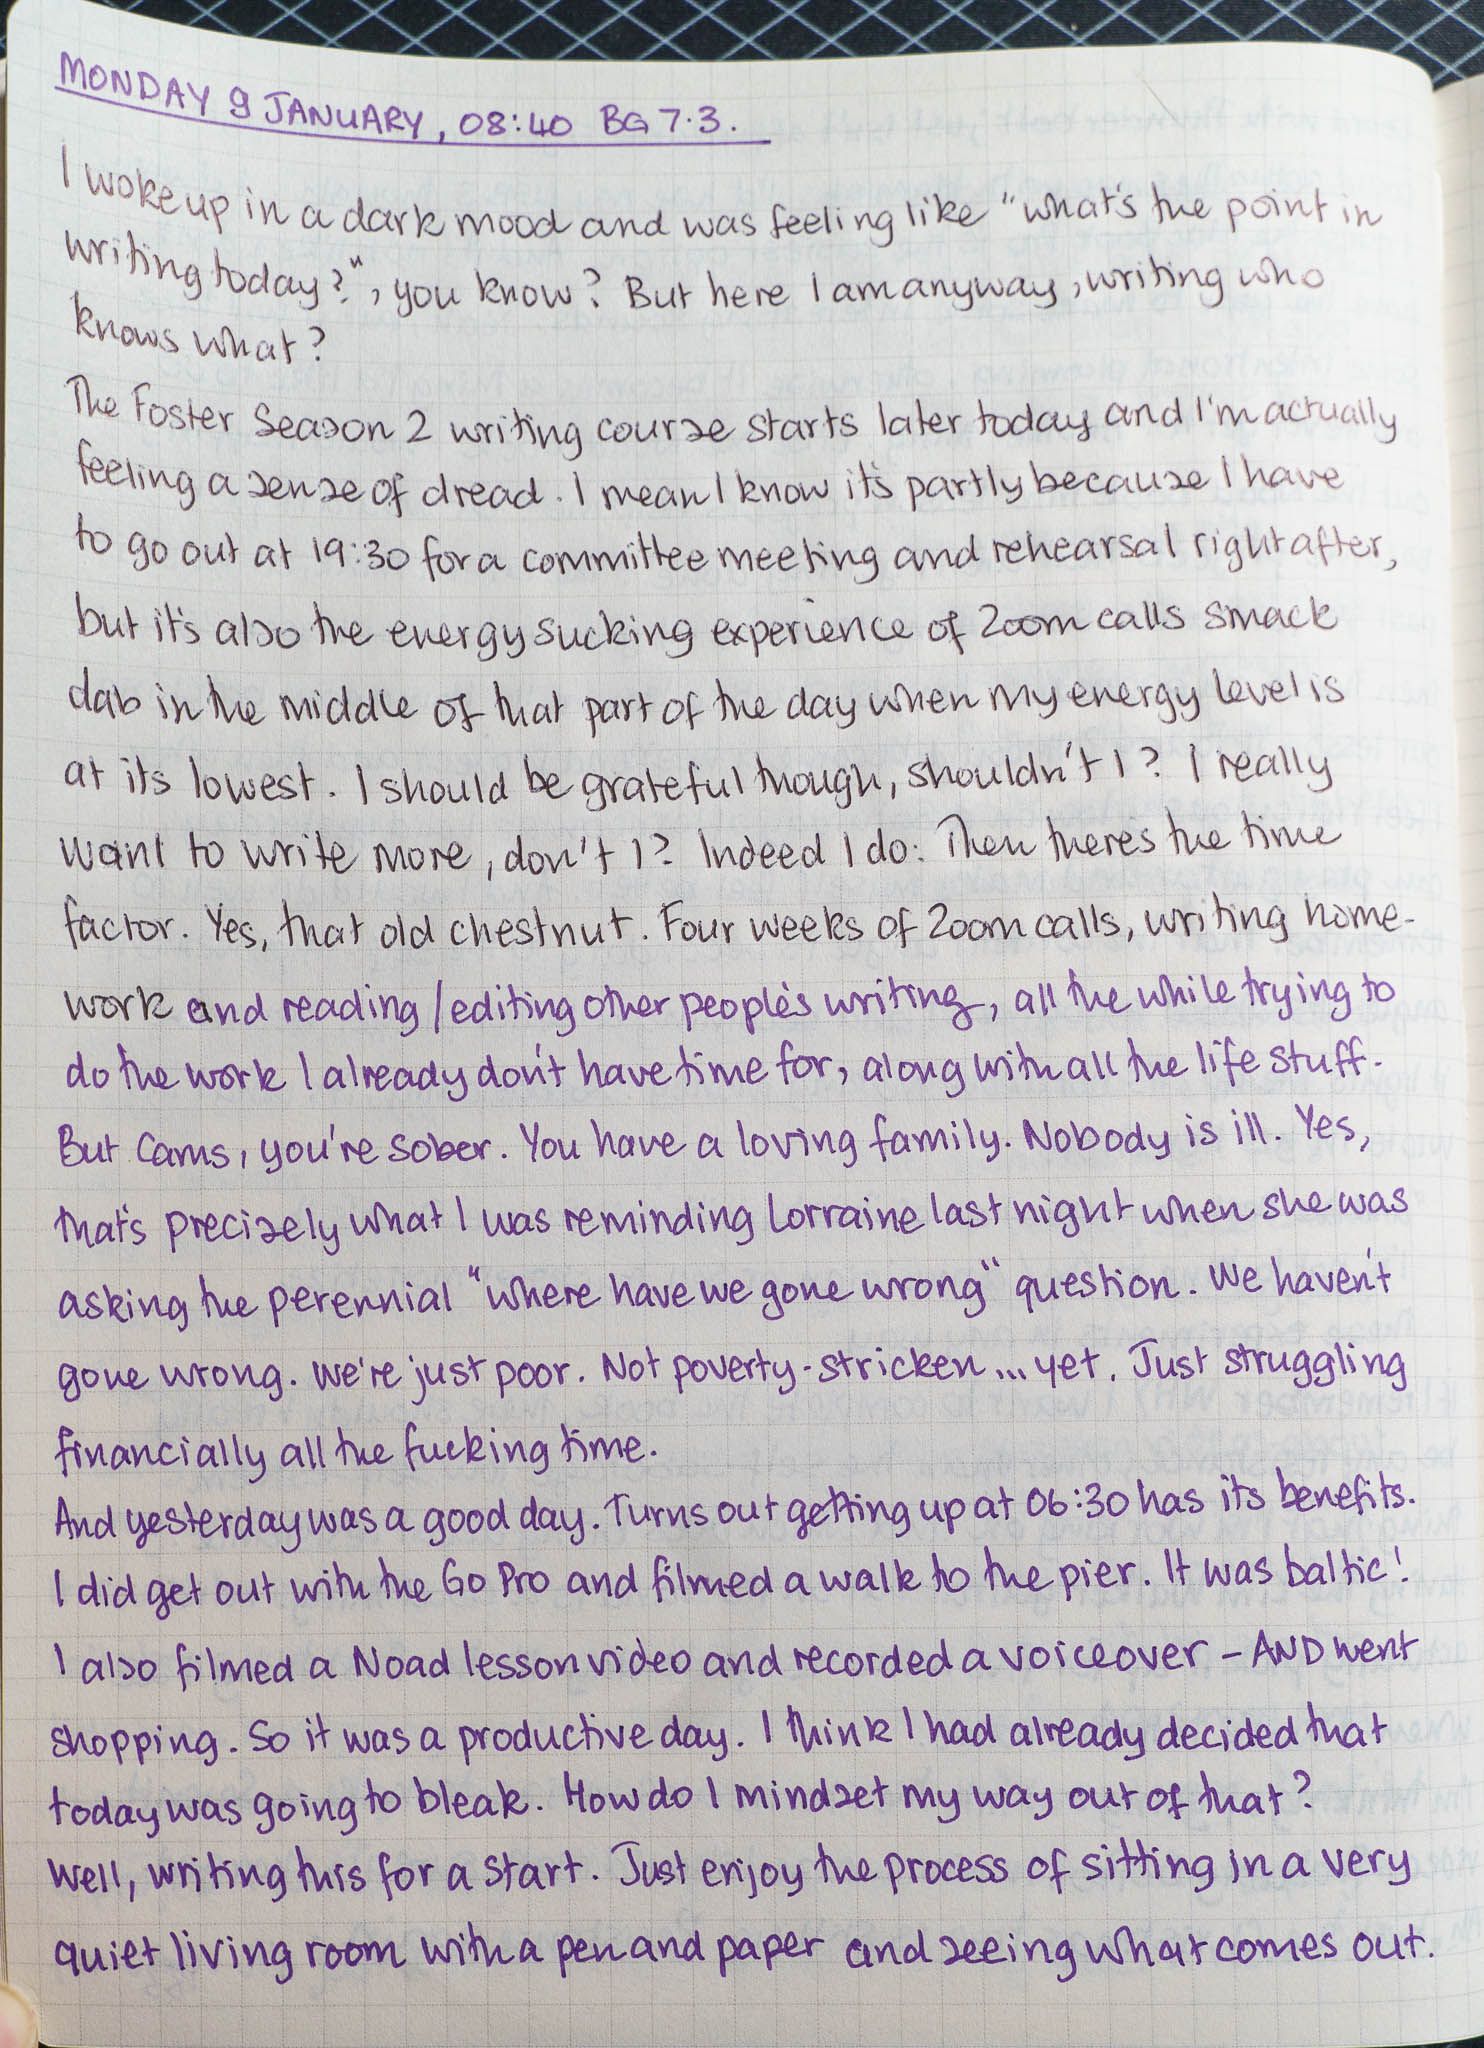 MONDAY 9 JANUARY, 08:40 BG 7.3.
I woke up in a dark mood and was feeling like "what's the point in
writing today?", you know? But here I am anyway, writing who
knows what?
The Foster Season 2 writing course starts later today and I'm actually
feeling a sense of dread. I mean I know it's partly because I have
to go out at 19:30 for a committee meeting and rehearsal right after,
but it's also the energy sucking experience of Zoom calls smack
dab in the middle of that part of the day when my energy level is
at its lowest. I should be grateful though, shouldn't I? I really
want to write more, don't I? Indeed I do. Then there's the time
factor. Yes, that old chestnut. Four weeks of Zoom calls, writing home-
work and reading/editing other people's writing, all the while trying to
do the work I already don't have time for, along with all the life stuff.
But Cams, you're sober. You have a loving family. Nobody is ill. Yes,
that's precisely what I was reminding Lorraine last night when she was
asking the perennial "where have we gone wrong" question. We haven't
gone wrong. We're just poor. Not poverty-stricken... yet. Just struggling
financially all the fucking time.
And yesterday was a good day. Turns out getting up at 06:30 has its benefits.
I did get out with the Go Pro and filmed a walk to the pier. It was baltic!
I also filmed a Noad lesson video and recorded a voiceover – AND went
shopping. So it was a productive day. I think I had already decided that
today was going to bleak. How do I mindset my way out of that?
Well, writing this for a start. Just enjoy the process of sitting in a very
quiet living room with a pen and paper and seeing what comes out.